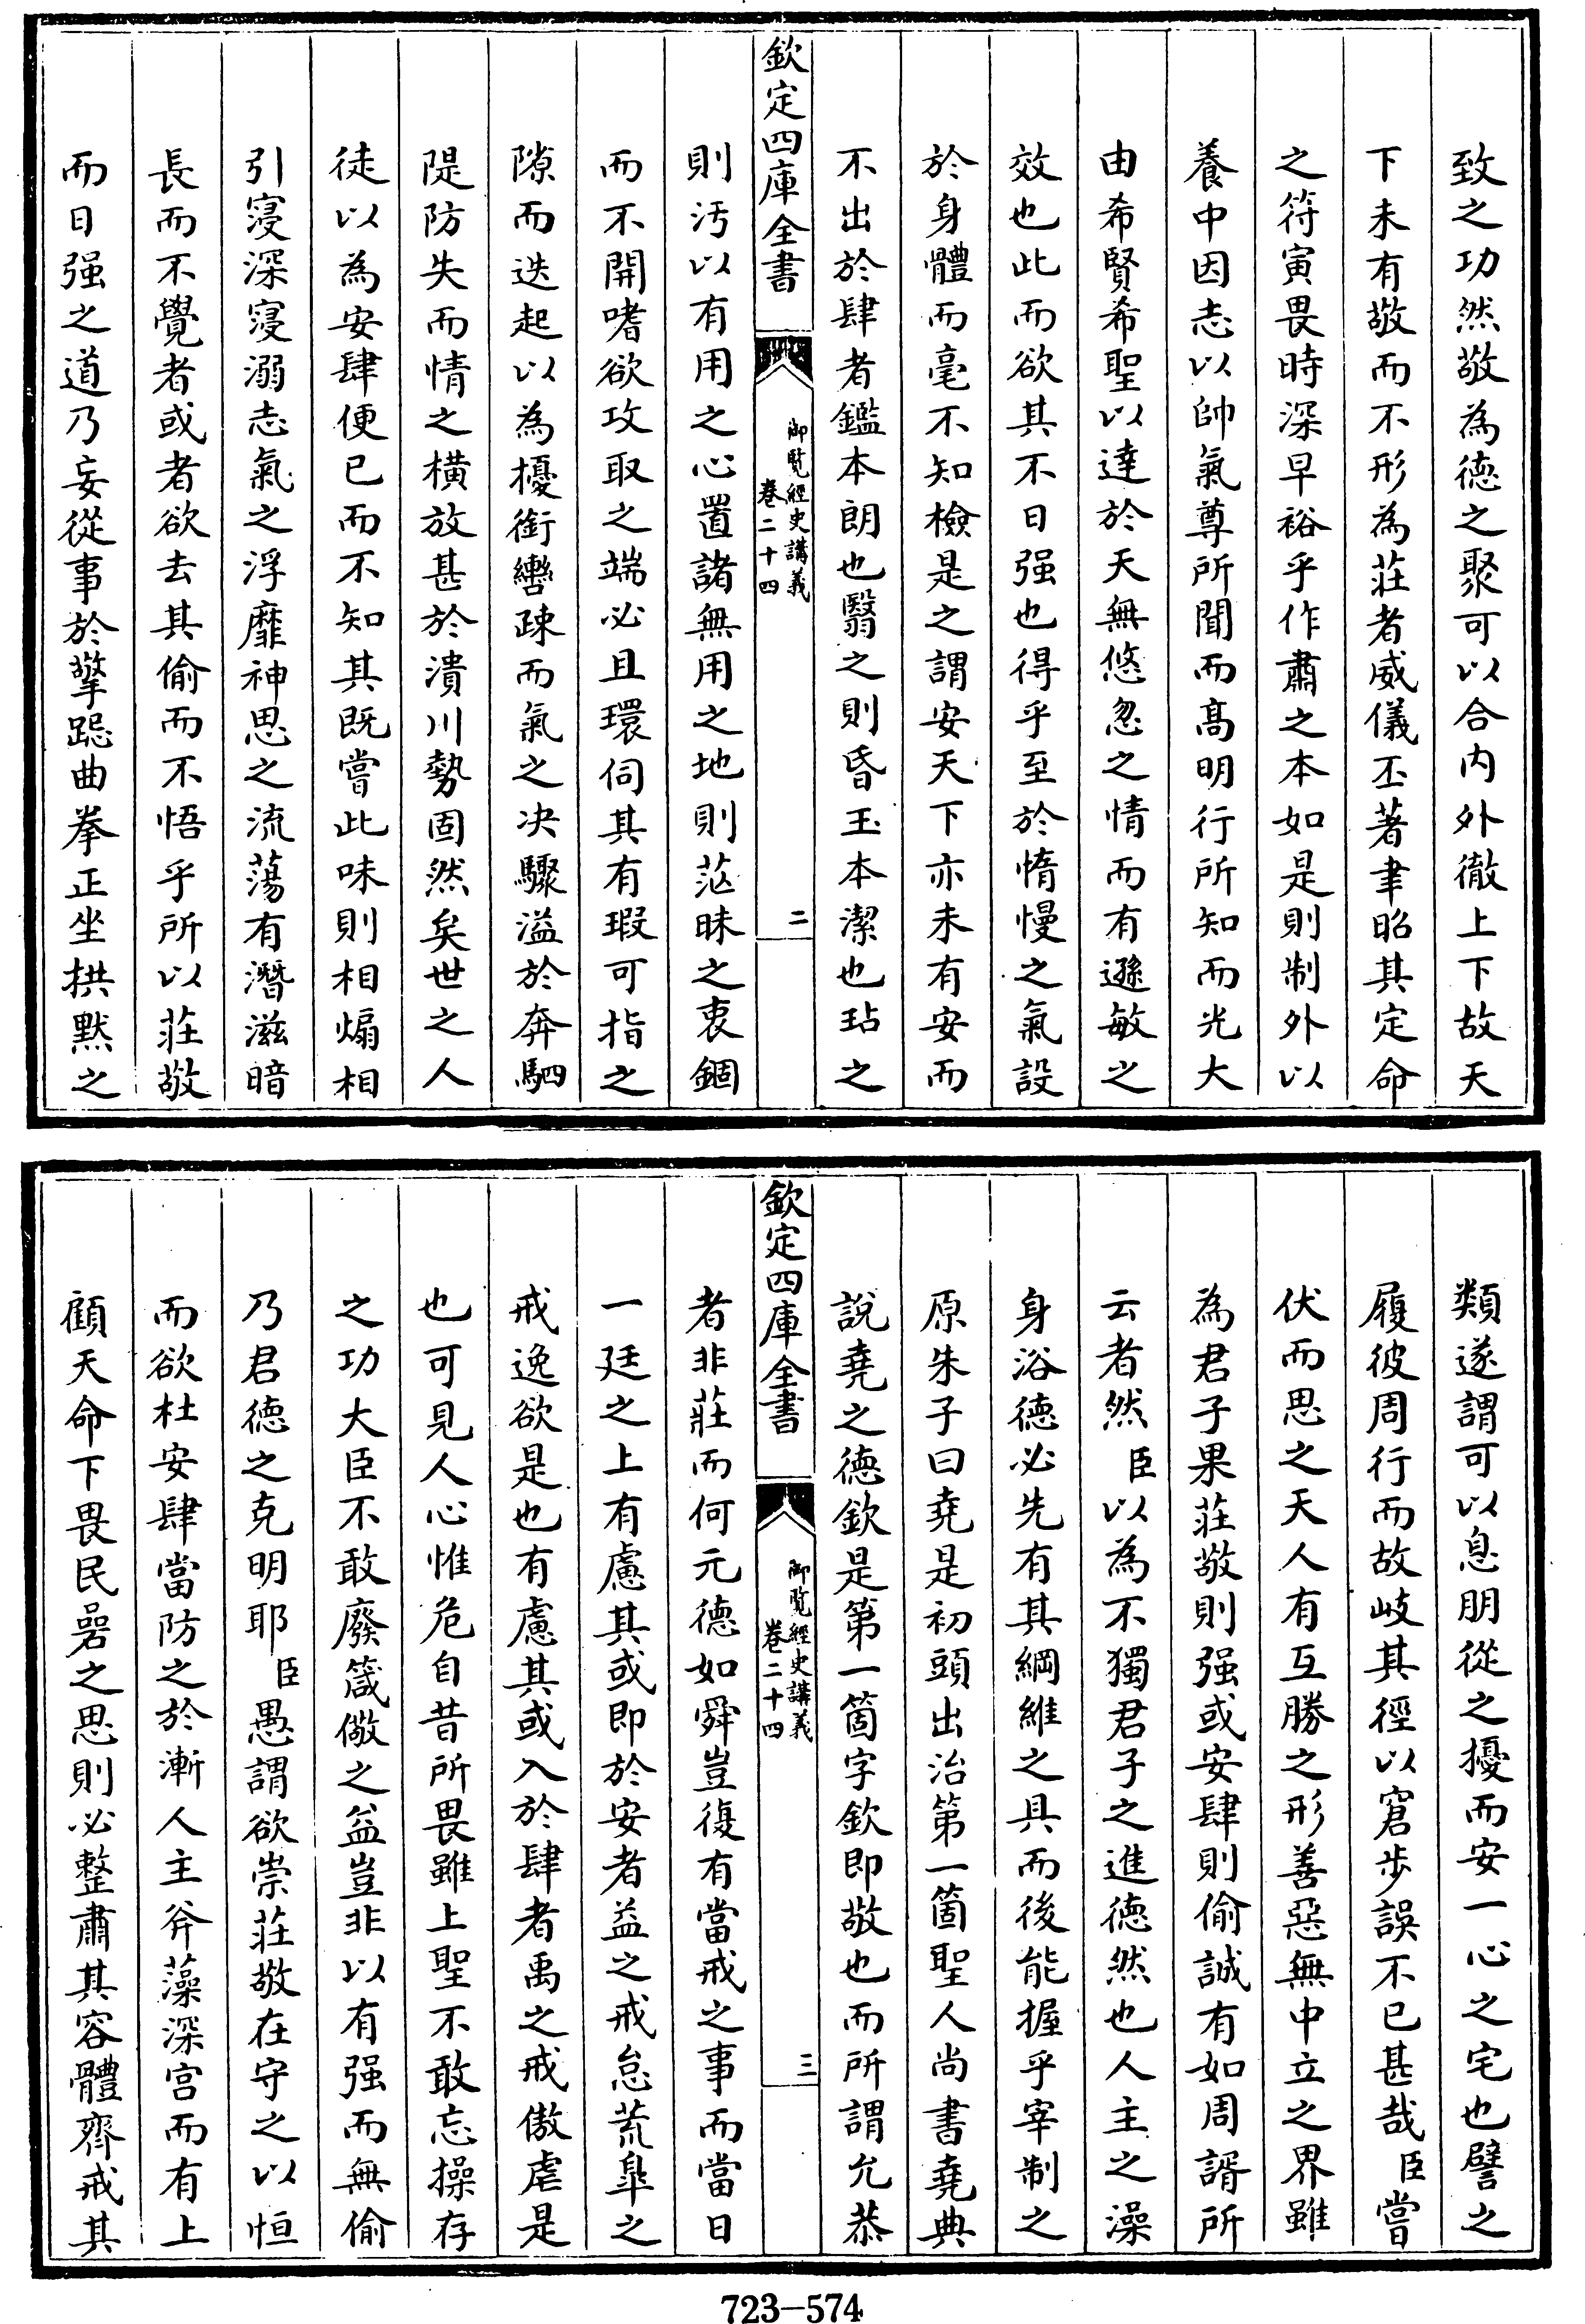 致之功然敬為德之聚可以合内外徹上下故天
下未有敬而不形為莊者威儀丕著聿昭其定命
之符寅畏時深早裕乎作肅之本如是則制外以
養中因志以帥氣尊所聞而高明行所知而光大
由希賢希聖以達於天無悠忽之情而有遜敏之
效也此而欲其不日强也得乎至於惰慢之氣設
於身體而毫不知檢是之謂安天下亦未有安而
不出於肆者鑑本朗也翳之則昏玉本潔也玷之
欽定四庫全書
御覧經史講義
卷二十四
二
則汚以有用之心置諸無用之地則茫昧之衷錮
而不開嗜欲攻取之端必且環伺其有瑕可指之
隙而迭起以為擾銜轡疎而氣之决驟溢於奔駟
隄防失而情之橫放甚於潰川勢固然矣世之人
徒以為安肆便已而不知其既嘗此味則相煽相
引寖深寖溺志氣之浮靡神思之流蕩有潛滋暗
長而不覺者或者欲去其偷而不悟乎所以莊敬
而日强之道乃妄從事於擎跽曲拳正坐拱黙之
類遂謂可以息朋從之擾而安一心之宅也譬之
履彼周行而故岐其徑以窘步誤不已甚哉臣嘗
伏而思之天人有互勝之形善惡無中立之界雖
為君子果莊敬則强或安肆則偷誠有如周諝所
云者然臣以為不獨君子之進德然也人主之澡
身浴德必先有其綱維之具而後能握乎宰制之
原朱子曰堯是初頭出治第一箇聖人尚書堯典
說堯之德欽是第一箇字欽即敬也而所謂允恭
欽定四庫全書
御覧經史講義
卷二十四
三
者非莊而何元德如舜豈復有當戒之事而當日
一廷之上有慮其或即於安者益之戒怠荒臯之
戒逸欲是也有慮其或入於肆者禹之戒傲虐是
也可見人心惟危自昔所畏雖上聖不敢忘操存
之功大臣不敢廢箴儆之益豈非以有强而無偷
乃君德之克明耶臣愚謂欲崇莊敬在守之以恒
而欲杜安肆當防之於漸人主斧藻深宫而有上
顧天命下畏民碞之思則必整肅其容體齊戒其
723-574